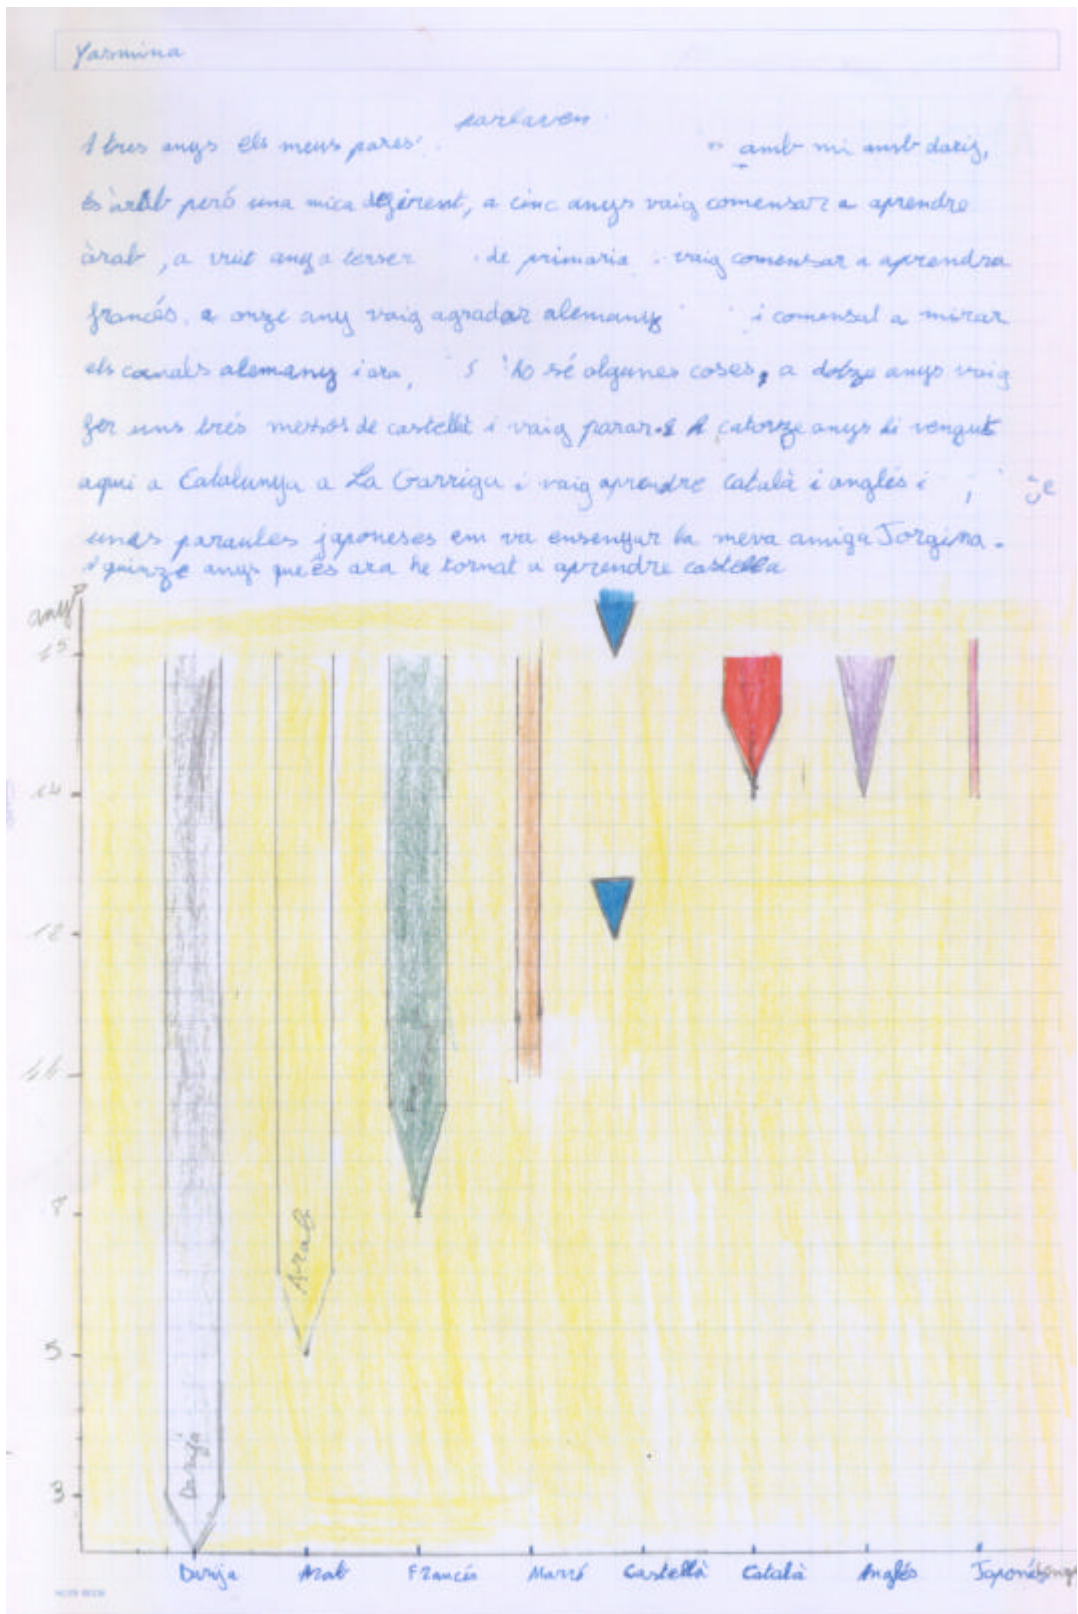 Yasmina
parlaven
A tres anys els meus pares amb mi amb darig,
és àrab peró una mica diferent, a cinc anys vaig comensar a aprendre
àrab, a vuit any a terser de primaria vaig comensar a aprendra
francés, a onze any vaig agradar alemany i comensat a mirar
els canals alemany i ara, ho sé algunes coses, a dotze anys vaig
fer uns trés messos de castellà i vaig parar. A catorze anys hi vengut
aqui a Catalunya a La Garriga i vaig aprendre català i anglés i
unes paraules japoneses em va ensenyar la meva amiga Jorgina.
A quinze anys que és ara he tornat a aprendre castella
anys
15
14
12
11
5
3
Arab
Darija
Darija Arab Francés Marró Castellà Català Anglés Japonés